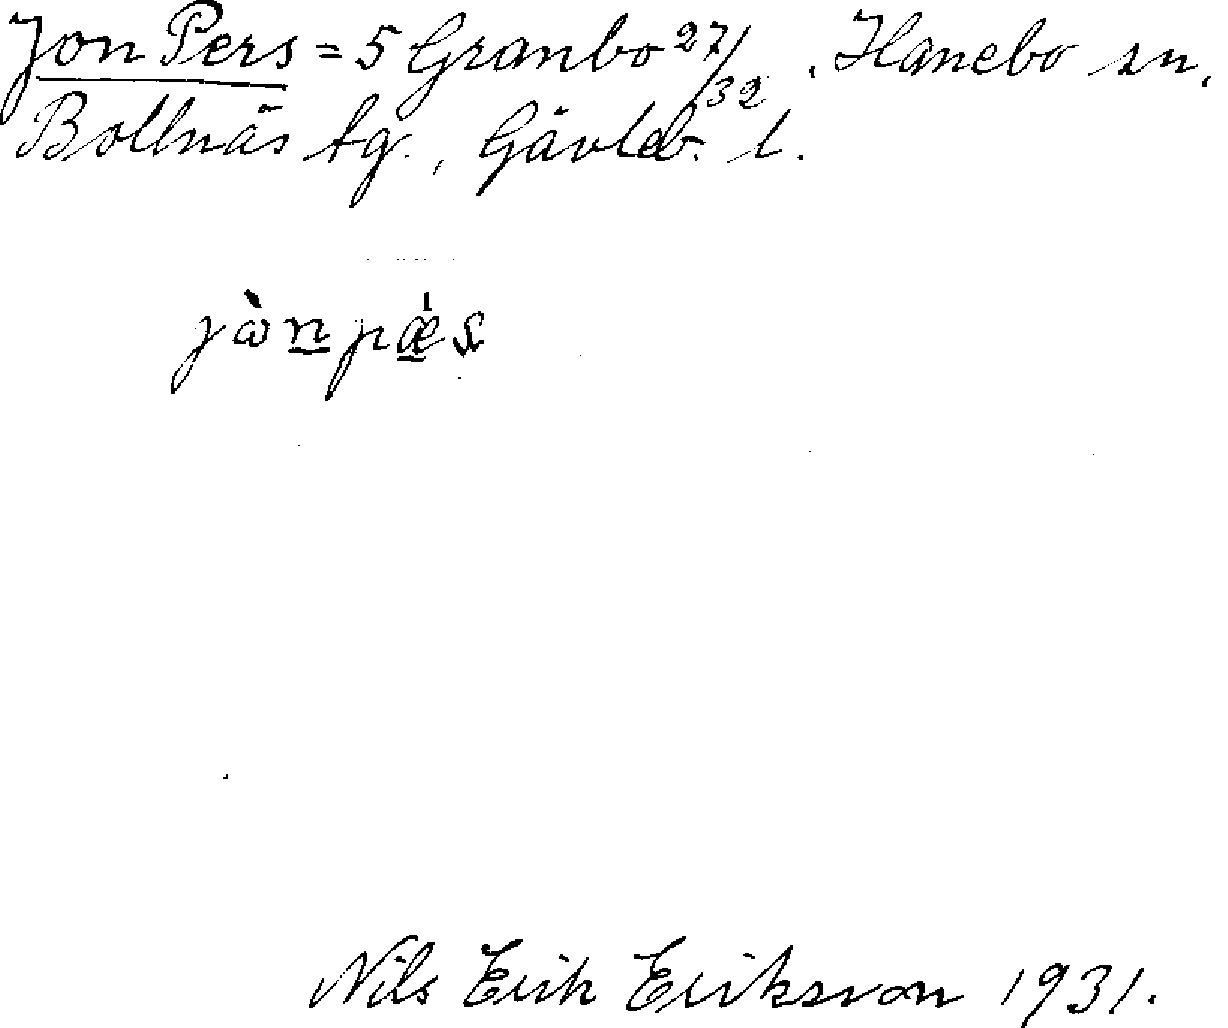 Jon Pers = 5 Granbo 27/32, Hanebo sn.
Bollnäs tg., Gävleb. l.
jὼn pǽs
Nils Erik Eriksson 1931.